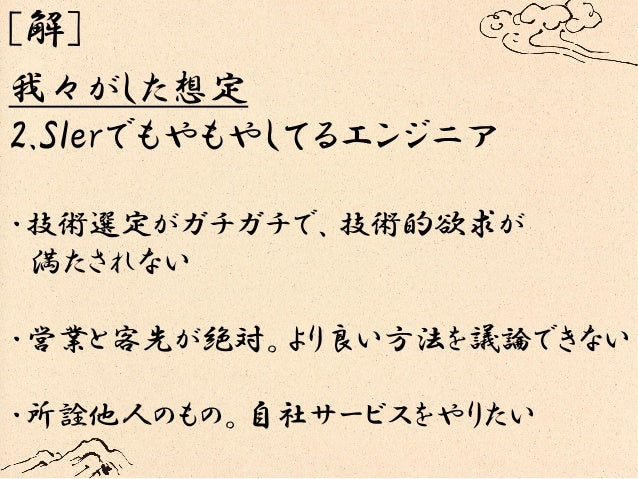 [解]
我々がした想定
2.SIerでもやもやしてるエンジニア
・技術選定がガチガチで、技術的欲求が
満たされない
・営業と客先が絶対。より良い方法を議論できない
・所詮他人のもの。自社サービスをやりたい